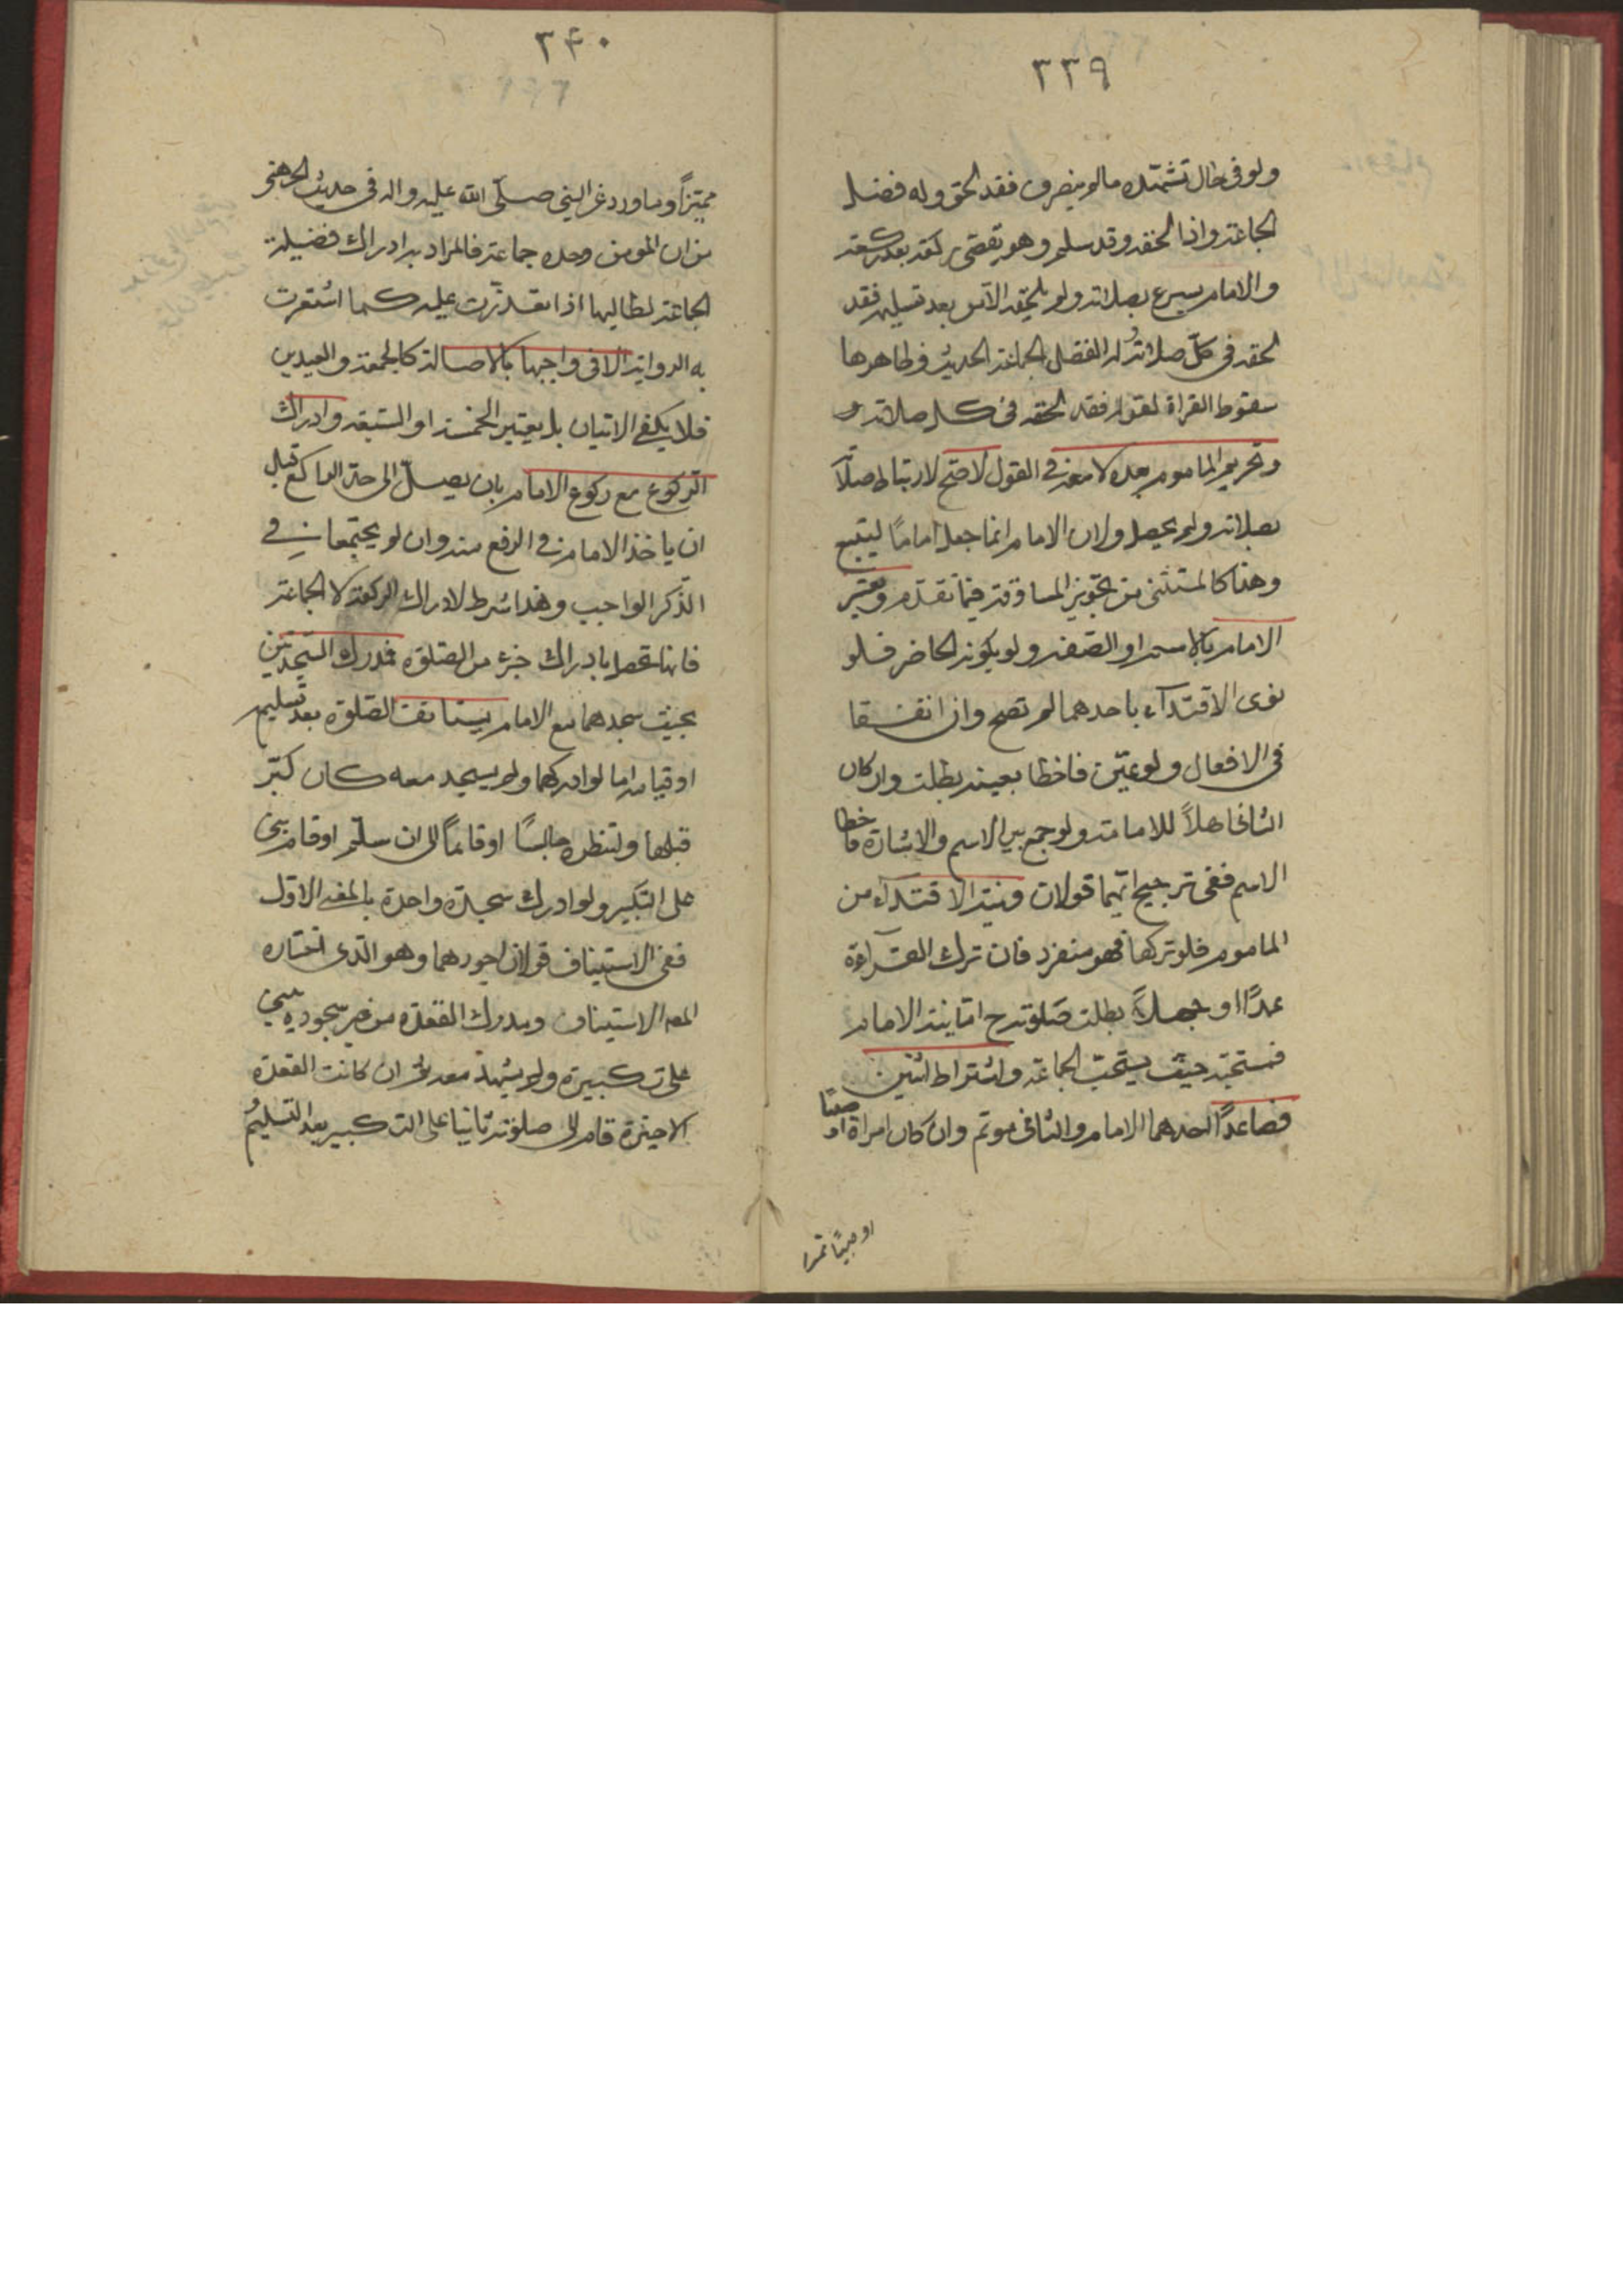 ٣٣٩
ولو فى حال تشهّده ما لم ينصرف فقد لحق وله فضل
الجماعة واذا لحقه وقد سلم وهو يقضى ركعة بعد ركعة
والامام يسرع بصلاته ولم يلحقه الآ من بعد تسليمه فقد
لحقه فى كلّ صلاته الفضل الجماعة الحديث وظاهرها
سقوط القراة لقوله فقد لحقه فى كل صلاته و
وتحريم الماموم بعده لا معه فى القول لاصح لارتباط صلاته
بصلاته ولم يحصل ولان الامام انما جعل اماماً ليتبع
وهذا كالمستثنى من تجويز المساوقة فيما تقدّم ويعتبر
الامام بالاسم او الصفة ولو بكونه الحاضر فلو
نوى الاقتدآء باحدهما لم تصح وان اتفقا
فى الافعال ولو عيّن فاخطا بعينه بطلت وان كان
الثانى اهلاً للامامة ولو جمع بين الاسم والاشارة فاخطا
الاسم ففى ترجيح ايّهما قولان ونيّة الاقتدآء من
الماموم فلو تركها فهو منفرد فان ترك القرآءة
عمدًا او جهلاً بطلت صلوته ح امّا نيّة الامام
فمستحبّة حيث يستحبّ الجماعة واشتراط اثنين
فصاعدًا احدهما الامام والثانى موتم وان كان امراة او صبيّا
او صبيّا مميّزا
٣۴٠
مميّزاً وما ورد عن النبى صلّى الله عليه واله فى حديث الجهنى
من ان المومن وحده جماعة فالمراد به ادراك فضيلة
الجماعة لطالبها اذا تعذّرت عليه كما اشعرت
به الرواية الا فى واجبها بالاصالة كالجمعة والعيدين
فلا يكفى الاثنان بل يعتبر الخمسة او السّبعة وادراك
الرّكوع مع ركوع الامام بان يصل الى حدّ الراكع قبل
ان ياخذ الامام فى الرفع منه وان لم يجتمعا فى
الذّكر الواجب وهذا شرط لادراك الركعة لا الجماعة
فانها تحصل بادراك جزء من الصّلوة فمدرك السّجدتين
بحيث سجدهما مع الامام يستانف الصّلوة بعد تسليمه
او قيامه اما لو ادركهما ولم يسجد معه كان كبّر
قبلها وانتظره جالسًا او قائماً الى ان سلّم او قام بنى
على التكبير ولو ادرك سجدة واحدة بالمعنى الاوّل
ففى الاستيناف قولان اجودهما وهو الّذى اختاره
المصه الاستيناف ومدرك القعدة من غير سجود يبنى
على تكبيره ولو يتشهّد معه ثم ان كانت القعدة
الاخيرة قام الى صلوته بانيا على التكبير بعد التسليم